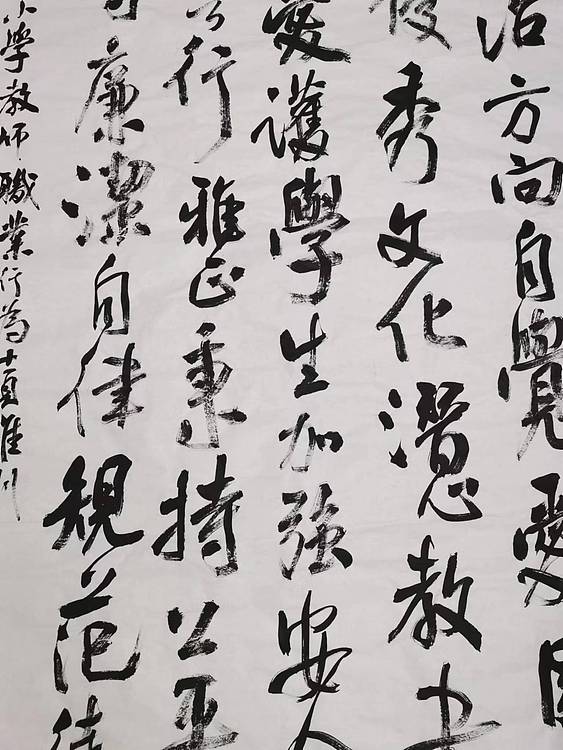 治方向自覺愛國
秀文化潛心教书
愛護學生加強安全
言行雅正秉持公平
廉潔自律規范
小學教師職業行為十項准则